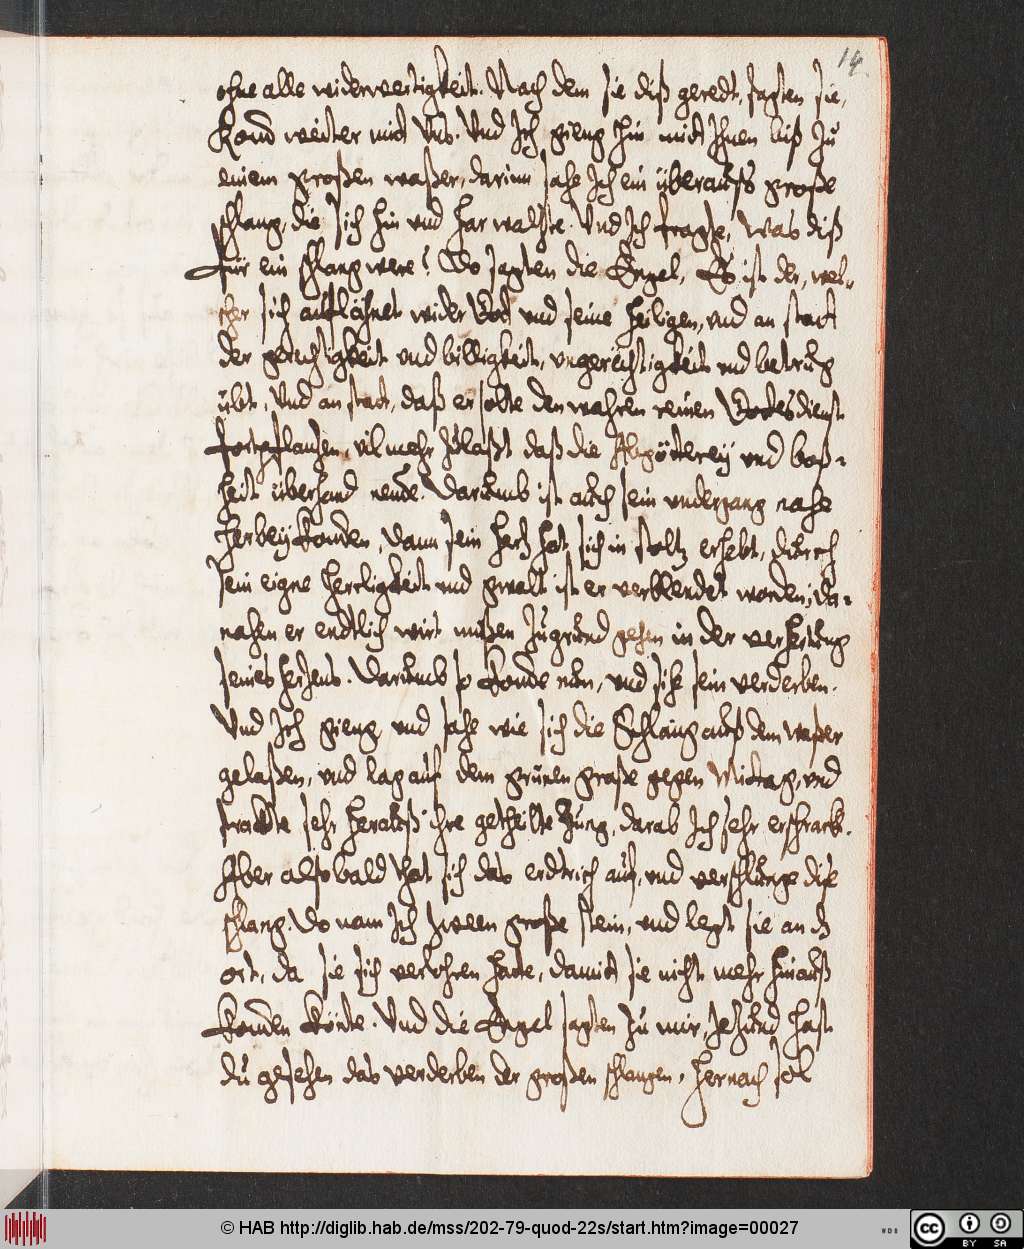 14.
ohne alle widerwertigkeit. Nach dem sie diß geredt, sagten sie,
Komb weiter mit Uns. Und Ich gieng hin mit Ihnen biß zu
einem großen waßer, darinn sahe Ich ein überauß große
schlang, die sich hin und har waltzte. Und Ich fragte, Was diß
für ein schlang were? Do sagten die Engel, Es ist der, wel-
cher sich aufflähnet wider Gott und seine heiligen, und an statt
der gerechtigkeit und billigkeit, ungerechtigkeit und betrug
übt, Und an statt, daß er solte den wahren reinen Gottesdienst
fortpflantzen, vil mehr zulaßt daß die Abgötterey und boß-
heit überhand neme. Darumb ist auch sein undergang nahe
herbey komen, dann sein hertz hat sich in stoltz erhebt, durch
sein eigne herrligkeit und gwalt ist er verblendet worden, da-
nahen er endtlich wirt müßen zugrund gehen in der verhertung
seines hertzens. Darumb so kome nun, und sihe sein verderben.
Und Ich gieng und sahe wie sich die Schlang auß dem waßer
gelaßen, und lag auf dem grünen graße gegen Mittag, und
strackte sehr herauß ihre getheilte Zung, darab Ich sehr erschrack.
Aber alsobald that sich das erdtrich auf, und verschlunge dise
schlang. Do nam Ich zween große stein, und legt sie an dz
ort, da sie sich verlohren hatte, damit sie nicht mehr hinauß
komen könte. Und die Engel sagten zu mir, Jetzund hast
du gesehen das verderben der großen schlangen, hernach sol
© HAB http://diglib.hab.de/mss/202-79-quod-22s/start.htm?image=00027
WDB
CC
BY SA